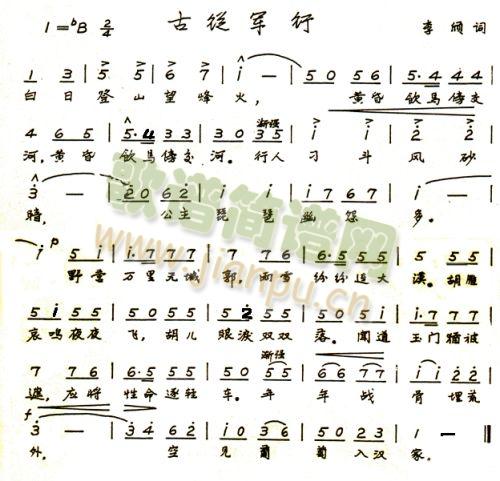 1=♭B 2/4 古從军行 李颀 词
1 3 5 5 | 6 7 | i — | 5 0 5 6 | 5·4 4 4 |
白日登山望烽火， 黄昏饮马傍交
4 6 5 | 5·4 3 3 | 3 0 3 5 | i i | 2 2 |
渐强
河。黄昏饮马傍交河。行人刁斗风砂
3 — | 2 0 6 2 | i — | i 7 6 7 | i — |
暗， 公主琵琶幽怨多。
i p 5 i | i·7 7 7 | 7 7 6 | 6·5 5 5 | 5 5 5 |
野营万里无城郭，雨雪纷纷连大漠。胡雁
5 i 5 5 | 5 0 5 i | 5 2 5 5 | 5 0 5 i | i·7 7 7 |
哀鸣夜夜飞，胡儿眼泪双双落。闻道玉门犹被
渐强
7 7 6 | 6·5 5 5 | 5 0 5 5 | 6 6 7 7 | i i 2 2 |
遮，应将性命逐轻车。年年战骨埋荒
f
3 — | 3 4 6 2 | i 0 3 6 | 5 0 2 3 | 1 — ‖
外。 空见葡萄入汉家。
歌谱简谱网
www.jianpu.cn